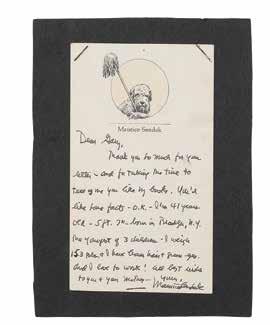 Maurice Sendak
Dear Gary,
Thank you so much for your
letter – and for taking the time to
tell me you like my books. You'd
like some facts – O.K. – I'm 41 years
old – 5 ft. 7 – born in Brooklyn, N.Y.
the youngest of 3 children – I weigh
153 & I have brown hair & green eyes.
And I love to work! All best wishes
to you & your mother –
Maurice Sendak